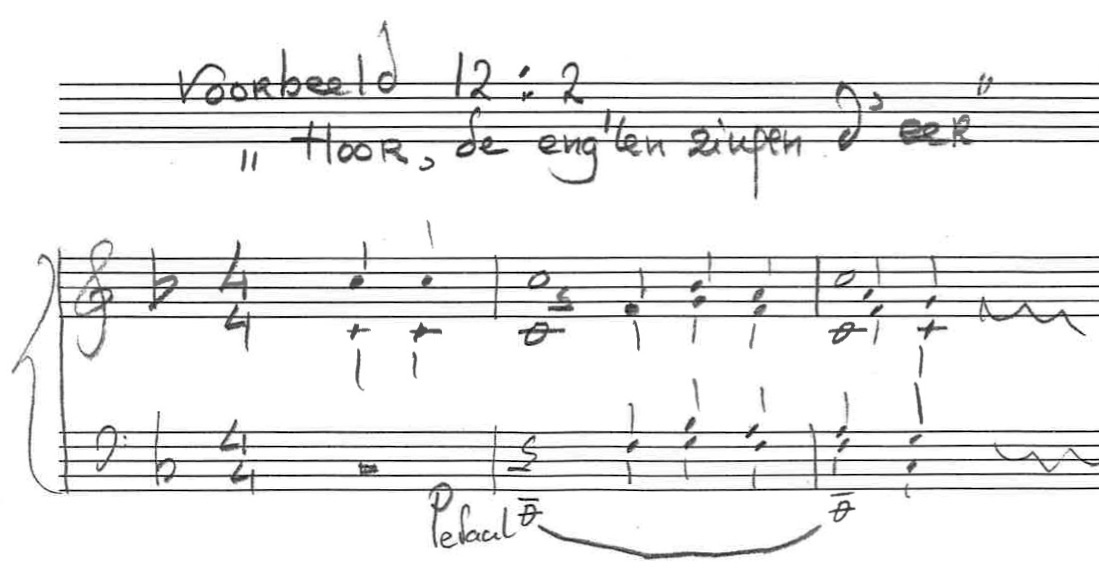 Voorbeeld 12:2
"Hoor, de eng'len zingen d'eer"
4
4
4
4
Pedaal